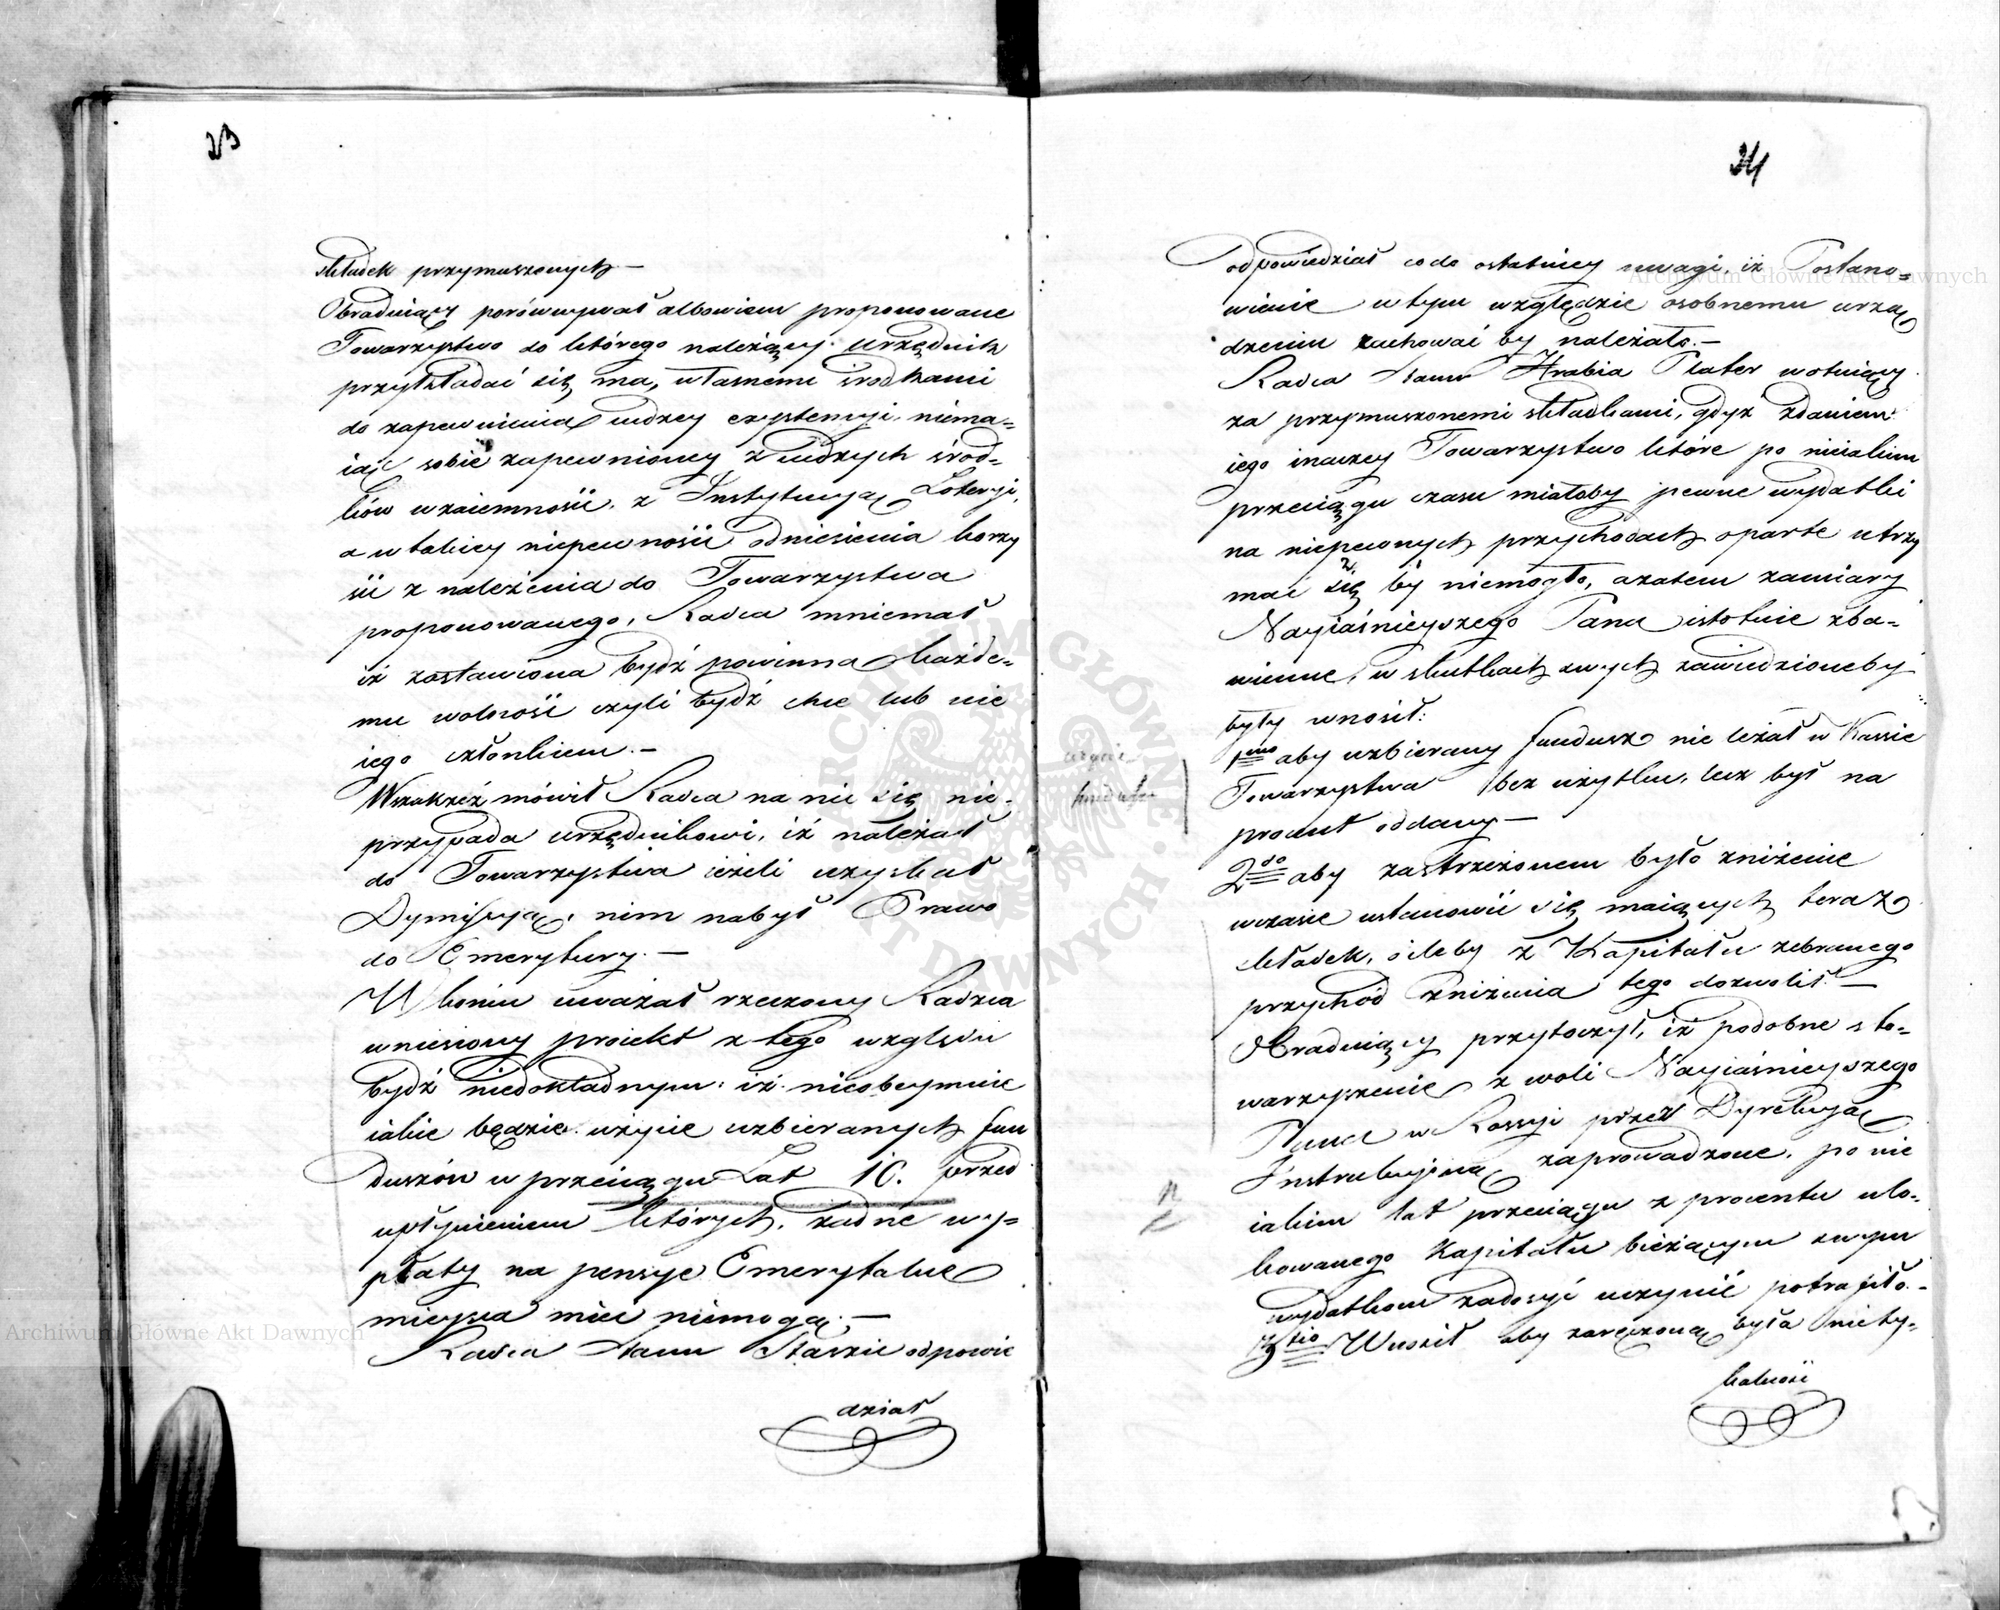 23
składek przymuszonych —
Obraduiący porównywał albowiem proponowane
Towarzystwo do którego należący urzędnik
przykładać się ma, własnemi środkami
do zapewnienia cudzey exystencyi, niema-
iąc sobie zapewnioney z cudzych środ-
ków wzaiemności, z Instytucyą Loteryi,
a w takiey niepewności odniesienia korzy
ści z należenia do Towarzystwa
proponowanego, Radca mniemał
iż zostawiona bydź powinna każde-
mu wolność czyli bydź chce lub nie
iego członkiem. —
Wszakżeż mówił Radca na nic się nie-
przypada urzędnikowi, iż należał
do Towarzystwa ieżeli uzyskał
Dymissyą, nim nabył Prawo
do Emerytury. —
W końcu uważał rzeczony Radzca
wniesiony proiekt z tego względu
bydź niedokładnym: iż nieobeymuie
iakie będzie użycie uzbieranych fun
duszów w przeciągu Lat 10. przed
upłynieniem których, żadne wy-
płaty na pensye Emerytalne
mieysca mieć niemogą. —
Radca Stanu Staszic odpowie
dział
24
odpowiedział codo ostatniey uwagi, iż Postano-
wienie w tym względzie osobnemu urzą
dzeniu zachować by należało. —
Radca Stanu Hrabia Plater wotuiący
za przymuszonemi składkami, gdyż zdaniem
iego inaczey Towarzystwo które po nieiakim
przeciągu czasu miałoby pewne wydatki
na niepewnych przychodach oparte utrzy
mać się by niemogło, azatem zamiary
Nayiaśnieyszego Pana istotnie zba-
wienne, w skutkach swych zawiedzioneby
były wnosił:
1mo aby uzbierany fundusz nie leżał w Kassie
Towarzystwa bez użytku, lecz był na
procent oddany —
użycie
funduszu
2do aby zastrzeżonem było zniżenie
wczasie ustanowić się maiących teraz
składek, ileby z Kapitału zebranego
przychód zniżenia tego dozwolił. —
Obraduiący przytoczył, iż podobne sto-
warzyszenie z woli Nayiaśnieyszego
Pana w Rossyi przez Dyrekcyą
Instrukcyiną zaprowadzone, po nie
iakim lat przeciągu z procentu ulo-
kowanego Kapitału bieżącym swym
wydatkom zadosyć uczynić potrafiło. —
3tio Wnosił aby zaręczoną była niety-
kalność
Archiwum Główne Akt Dawnych
Archiwum Główne Akt Dawnych
ARCHIWUM GŁÓWNE AKT DAWNYCH